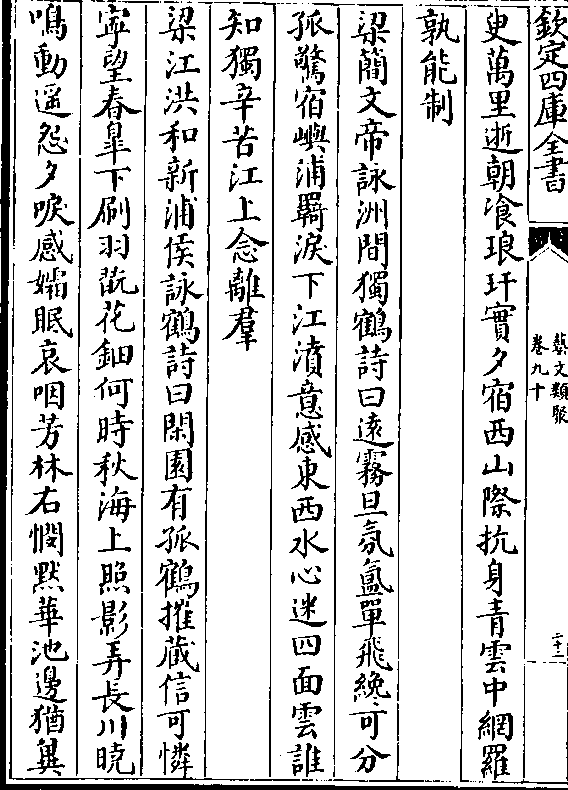 欽定四庫全書
藝文類聚
卷九十
二十二
臾萬里逝朝飡琅玕實夕宿西山際抗身青雲中網羅
孰能制
梁簡文帝詠洲間獨鶴詩曰遠霧旦氛氳單飛纔可分
孤驚宿嶼浦羇淚下江濆意感東西水心迷四面雲誰
知獨辛苦江上念離羣
梁江洪和新浦侯詠鶴詩曰閑園有孤鶴摧藏信可憐
寜望春臯下刷羽翫花鈿何時秋海上照影弄長川曉
鳴動遥怨夕唳感孀眠哀咽芳林右憫黙華池邊猶冀